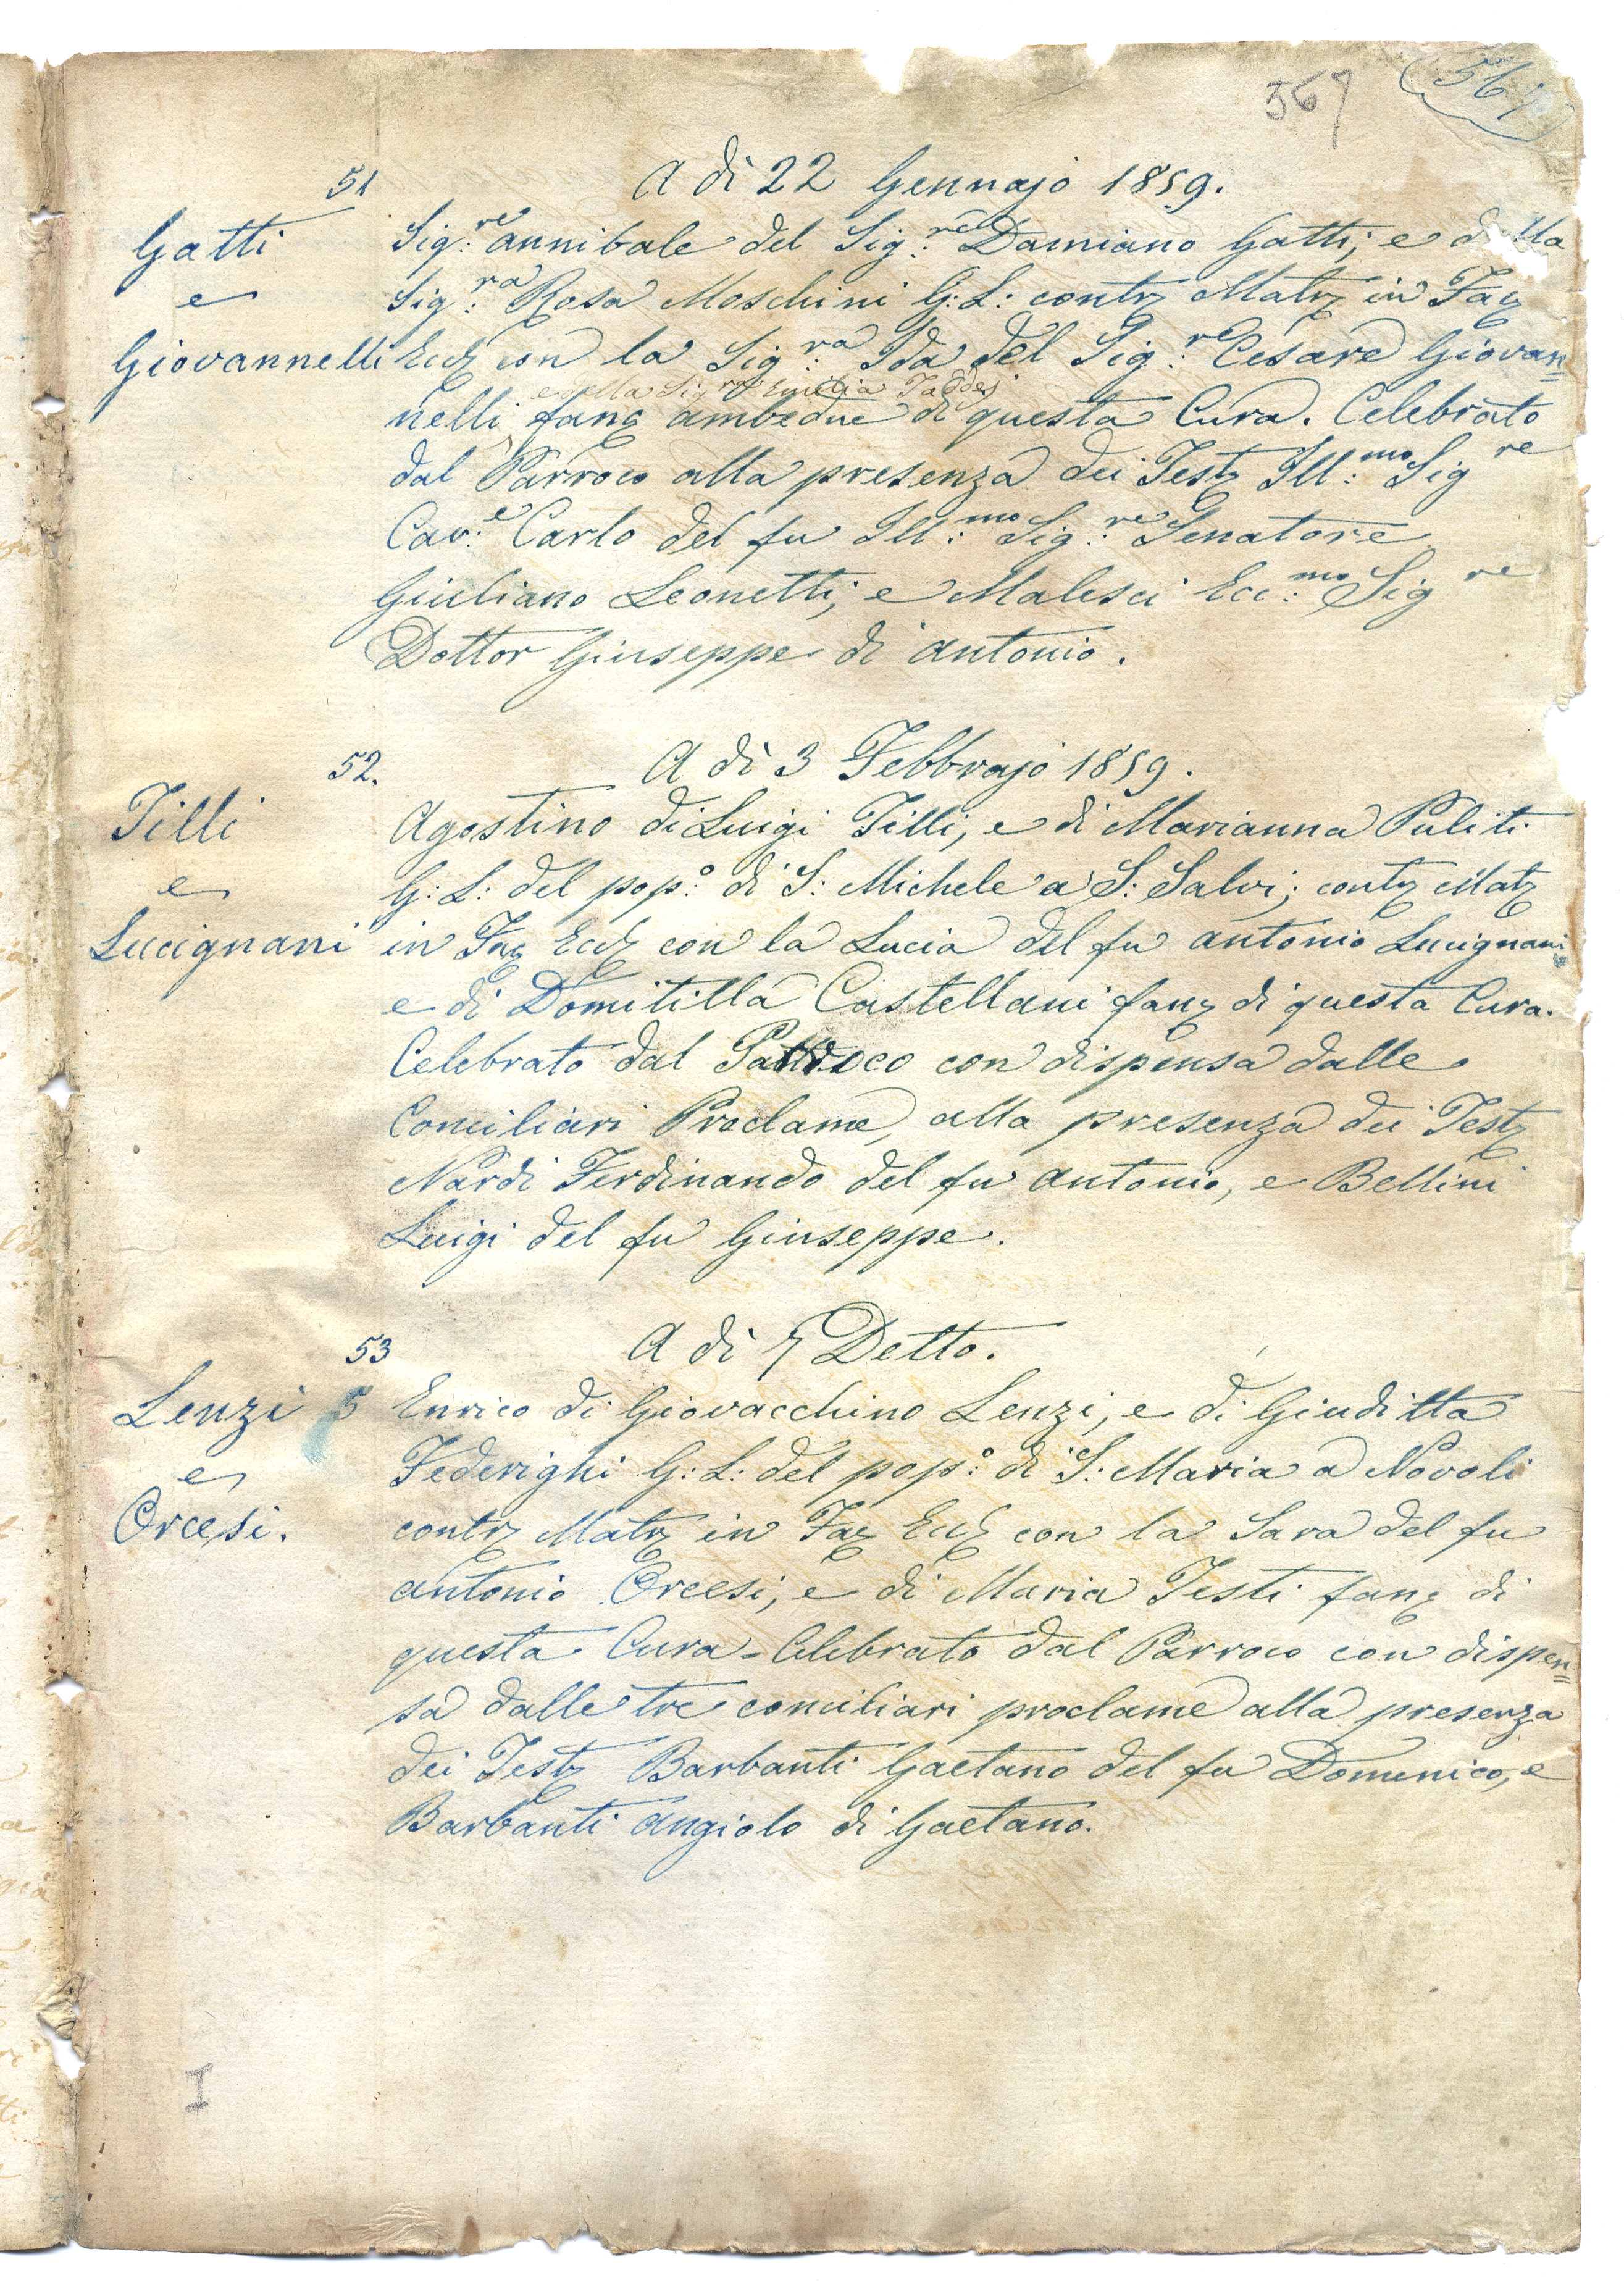 567
567
51
A dì 22 Gennajo 1859.
Gatti
e
Giovannelli
Sig:re Annibale del Sig:re Damiano Gatti, e della
Sig:ra Rosa Moschini G: L: contz Matz in Facz
Eccl con la Sig:ra Ida del Sig:re Cesare Giovan=
e della Sig:ra Emilia Taddei
nelli fanc ambedue di questa Cura. Celebrato
dal Parroco alla presenza dei Testz Ill:mo Sigre
Cav:e Carlo del fu Ill:mo Sig:re Senatore
Giuliano Leonetti; e Malesci Ecc:mo Sigre
Dottor Giuseppe di Antonio.
52.
A dì 3 Febbrajo 1859.
Tilli
e
Lucignani
Agostino di Luigi Tilli, e di Marianna Puliti
G: L: del pop:o di S: Michele a S: Salvi; contz Matz
in Facz Eccl con la Lucia del fu Antonio Lucignani
e di Domitilla Castellani fanz di questa Cura.
Celebrato dal Parroco con dispensa dalle
Conciliari Proclame, alla presenza dei Testz
Nardi Ferdinando del fu Antonio, e Bellini
Luigi del fu Giuseppe.
53
A dì 5 Detto.
Lenzi 5
e
Orcesi.
Enrico di Giovacchino Lenzi, e di Giuditta
Federighi G: L: del pop:o di S: Maria a Novoli
contz Matz in Facz Eccl con la Sara del fu
Antonio Orcesi, e di Maria Testi fanc di
questa Cura - Celebrato dal Parroco con dispen=
sa dalle tre conciliari proclame alla presenza
dei Testz Barbanti Gaetano del fu Domenico, e
Barbanti Angiolo di Gaetano.
I